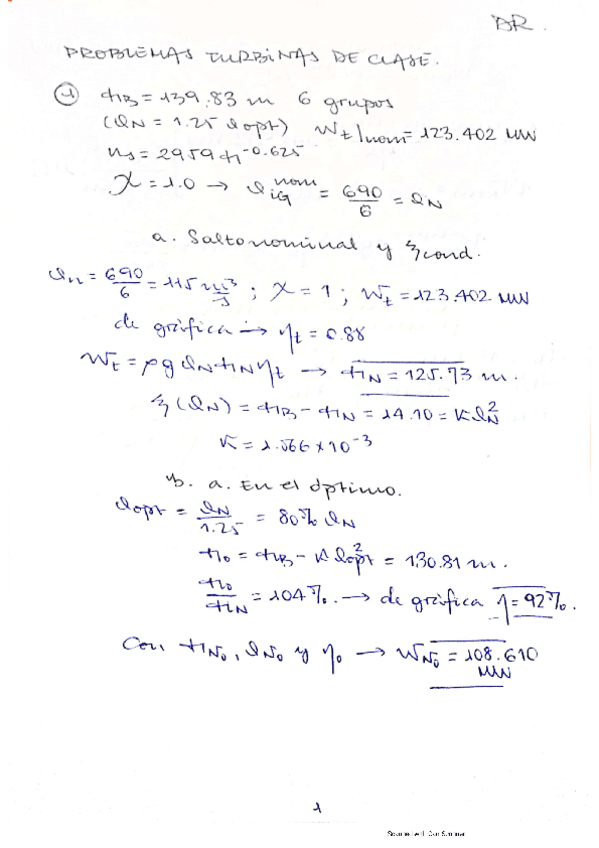 DR.
PROBLEMAS TURBINAS DE CLASE.
① HB = 139.83 m 6 grupos
(QN = 1.25 Qopt) Wt|nom = 123.402 MW
ns = 2959 H^-0.625
X = 1.0 → QiG^nom = 690/6 = QN
a. Salto nominal y ξcond.
Qn = 690/6 = 115 m³/s ; X = 1 ; Wt = 123.402 MW
de gráfica → ηt = 0.88
Wt = ρg QN HN ηt → HN = 125.73 m.
ξ(QN) = HB - HN = 14.10 = K QN²
K = 1.066 x 10^-3
b. a. En el óptimo.
Qopt = QN/1.25 = 80% QN
Ho = HB - K Qopt² = 130.81 m.
Ho/HN = 104%. → de gráfica η = 92%.
Con HNo, QNo y ηo → WNo = 108.610 MW
1
Scanned with CamScanner